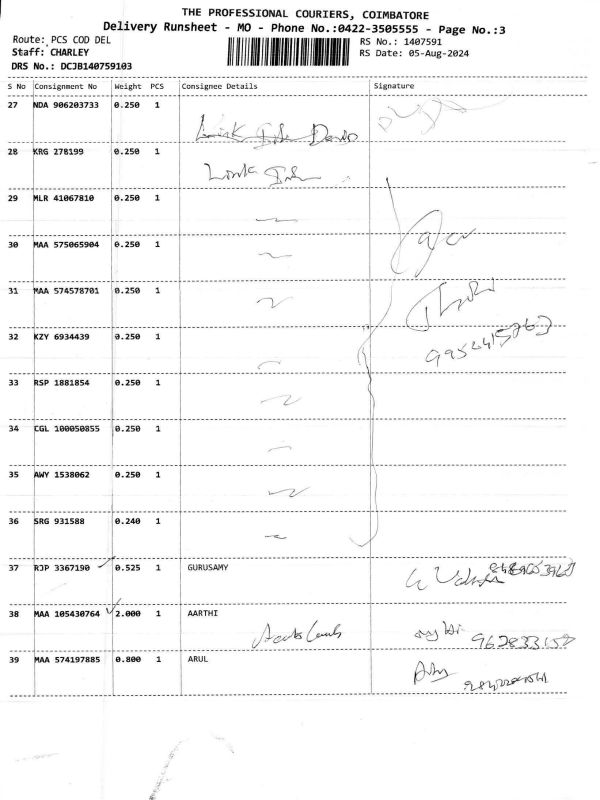 THE PROFESSIONAL COURIERS, COIMBATORE
Delivery Runsheet - MO - Phone No.:0422-3505555 - Page No.:3
Route: PCS COD DEL
RS No.: 1407591
Staff: CHARLEY
RS Date: 05-Aug-2024
DRS No.: DCJB140759103
S No Consignment No Weight PCS Consignee Details Signature
27 NDA 906203733 0.250 1
28 KRG 278199 0.250 1
29 MLR 41067810 0.250 1
30 MAA 575065904 0.250 1
31 MAA 574578701 0.250 1
32 KZY 6934439 0.250 1
33 RSP 1881854 0.250 1
34 CGL 100050855 0.250 1
35 AWY 1538062 0.250 1
36 SRG 931588 0.240 1
37 RJP 3367190 0.525 1 GURUSAMY
38 MAA 105430764 2.000 1 AARTHI
39 MAA 574197885 0.800 1 ARUL